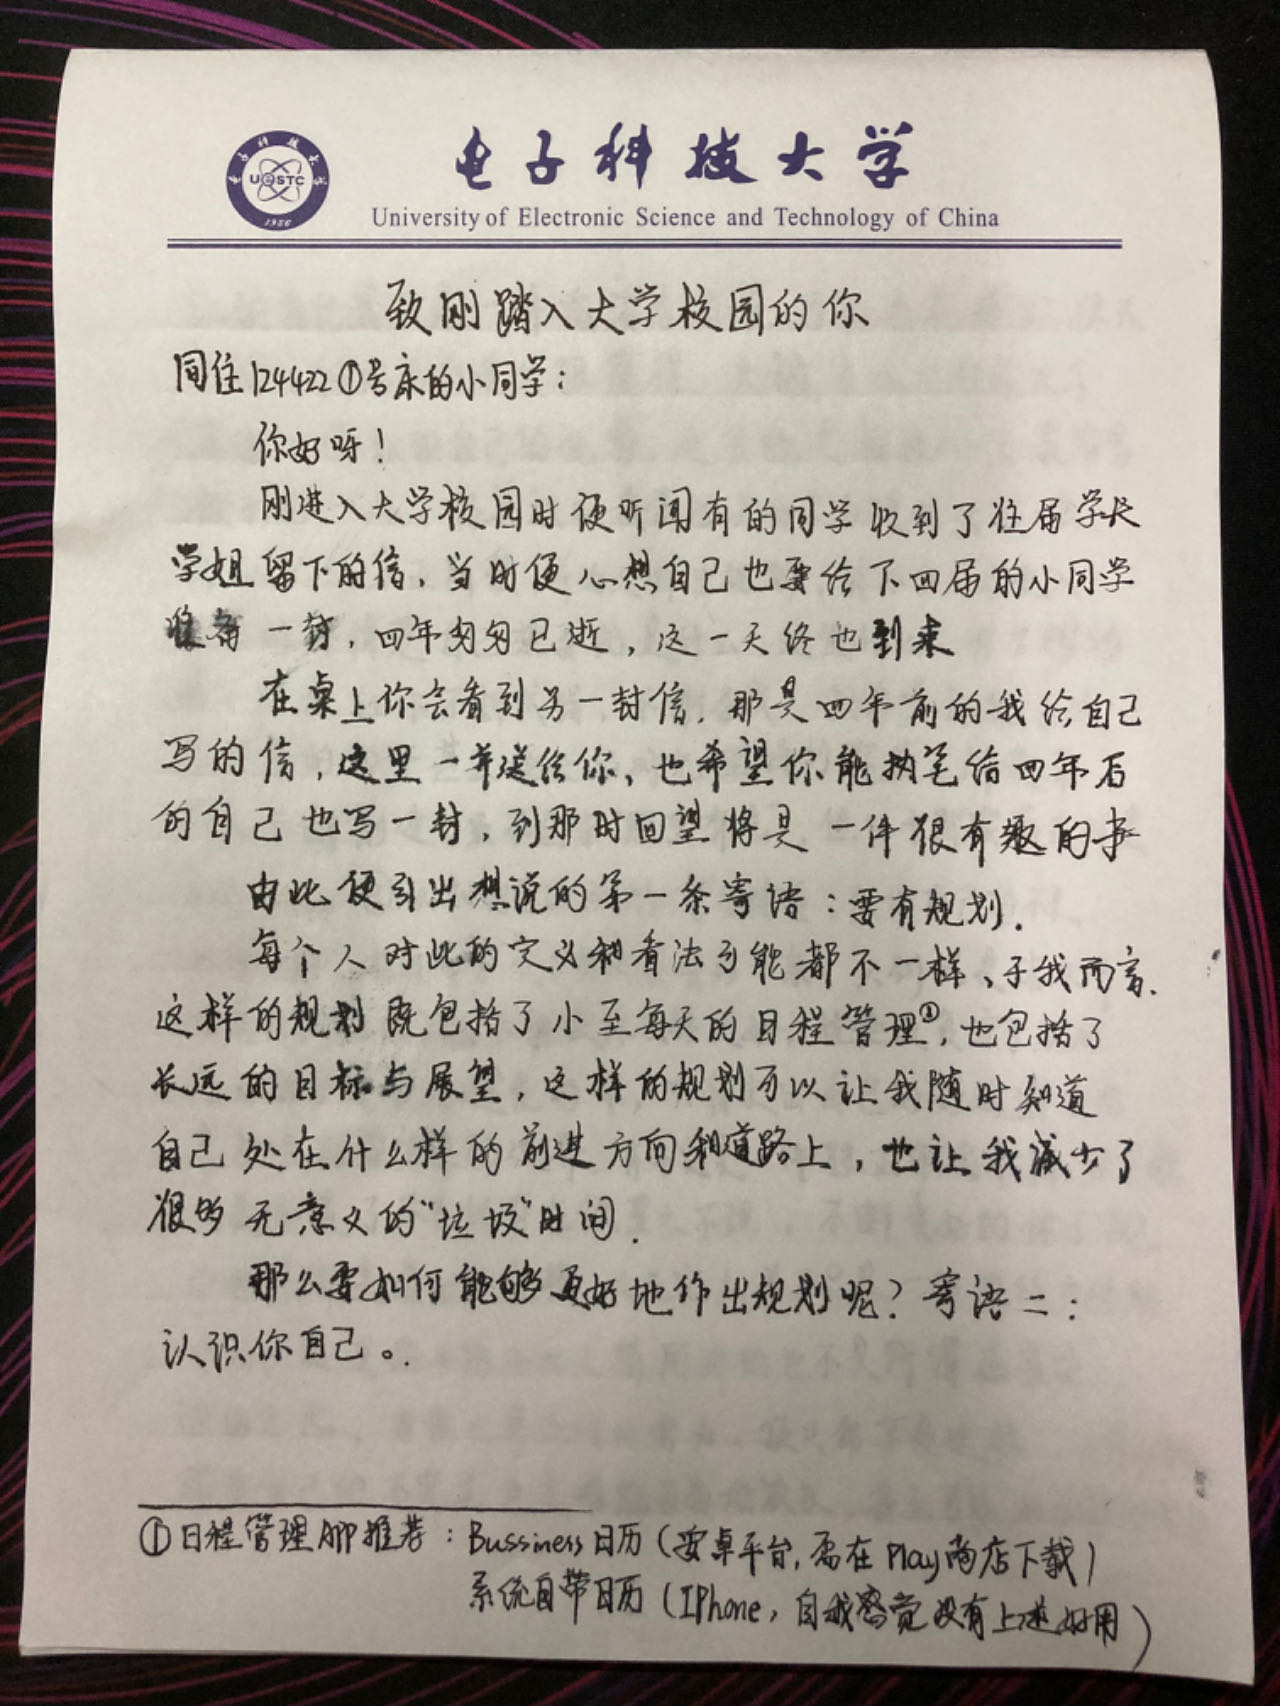 电子科技大学
University of Electronic Science and Technology of China
UESTC
1956
致刚踏入大学校园的你
同住124422①号床的小同学：
你好呀！
刚进入大学校园时便听闻有的同学收到了往届学长
学姐留下的信，当时便心想自己也要给下四届的小同学
准备一封，四年匆匆已逝，这一天终也到来
在桌上你会看到另一封信，那是四年前的我给自己
写的信，这里一并送给你，也希望你能执笔给四年后
的自己也写一封，到那时回望将是一件很有趣的事
由此便引出想说的第一条寄语：要有规划．
每个人对此的定义和看法可能都不一样、于我而言，
这样的规划既包括了小至每天的日程管理①，也包括了
长远的目标与展望，这样的规划可以让我随时知道
自己处在什么样的前进方向和道路上，也让我减少了
很多无意义的“垃圾”时间．
那么要如何能够更好地作出规划呢？寄语二：
认识你自己。
①日程管理APP推荐：Bussiness日历（安卓平台，需在Play商店下载）
系统自带日历（IPhone，自我感觉没有上述好用）